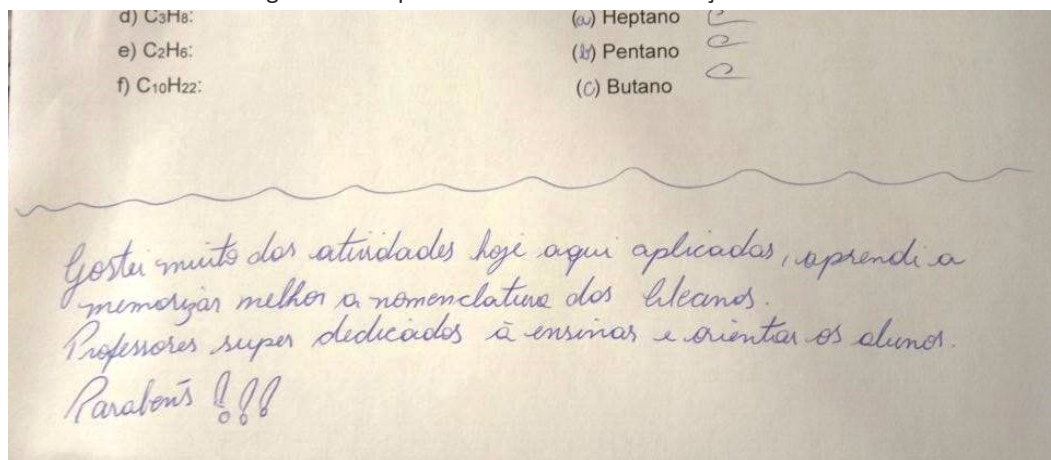 d) C₃H₈:
(a) Heptano
e) C₂H₆:
(b) Pentano
f) C₁₀H₂₂:
(c) Butano
Gostei muito das atividades hoje aqui aplicadas, aprendi a
memorizar melhor a nomenclatura dos Alcanos.
Professores super dedicados à ensinar e orientar os alunos.
Parabéns !!!